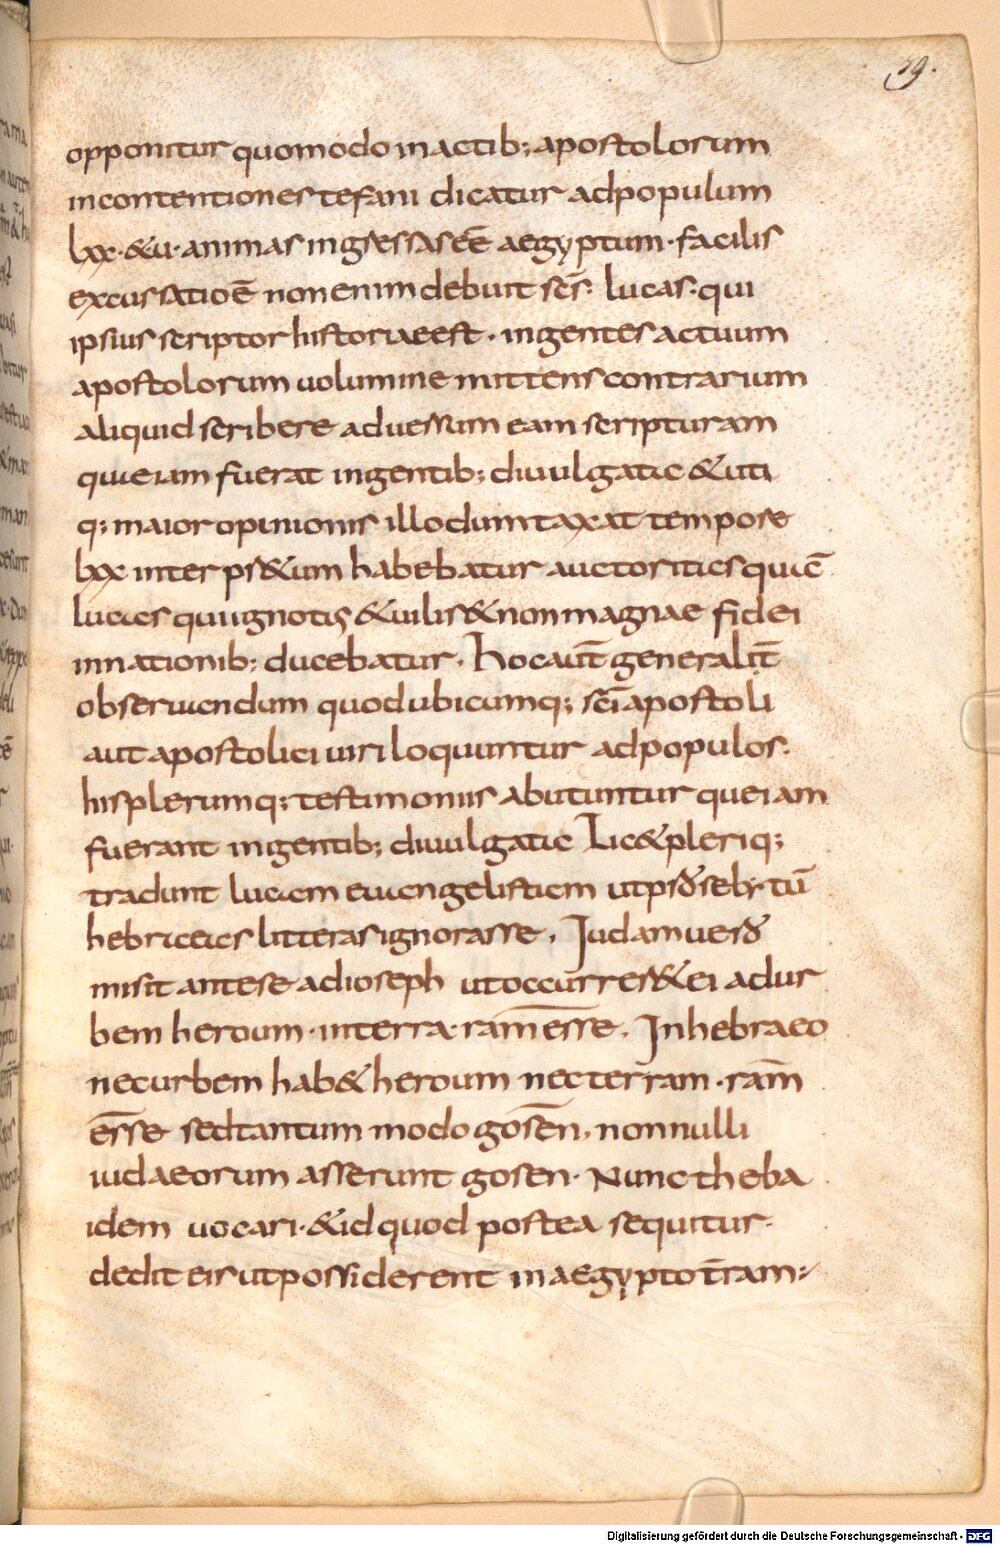 59.
opponitur quomodo in actib; apostolorum
in contentione stefani dicatur ad populum
lxx·&u·animas ingressas eē aegyptum·facilis
excussatio ē non enim debuit scs̄· lucas·qui
ipsius scriptor historiae est· in gentes actuum
apostolorum uolumine mittens contrarium
aliquid scribere aduersum eam scripturam
quae iam fuerat in gentib; diuulgata &uti
q; maior opinionis illo dumtaxat tempore
lxx interpr&um habebatur auctoritas quā
lucas qui ignotus &uilis&non magnae fidei
in nationib; ducebatur. Hoc aut̄ generalit̄
obseruandum quod ubicumq; sc̄i apostoli
aut apostolici uiri loquuntur ad populos·
his plerumq; testimoniis abutuntur quae iam
fuerant in gentib; diuulgata Lic& pleriq;
tradunt lucam euangelistam ut
hebraeas litteras ignorasse. Iudam uero
misit ante se ad ioseph ut occurrer& ei ad ur
bem heroum·in terra·ram̄esse. In hebraeo
nec urbem hab& heroum nec terram·ram̄
ēsse sed tantum modo gosēn, nonnulli
iudaeorum asserunt gosen· Nunc theba
idem uocari·&id quod postea sequitur·
dedit eis ut possiderent in aegypto t̄ram:
Digitalisierung gefördert durch die Deutsche Forschungsgemeinschaft - DFG